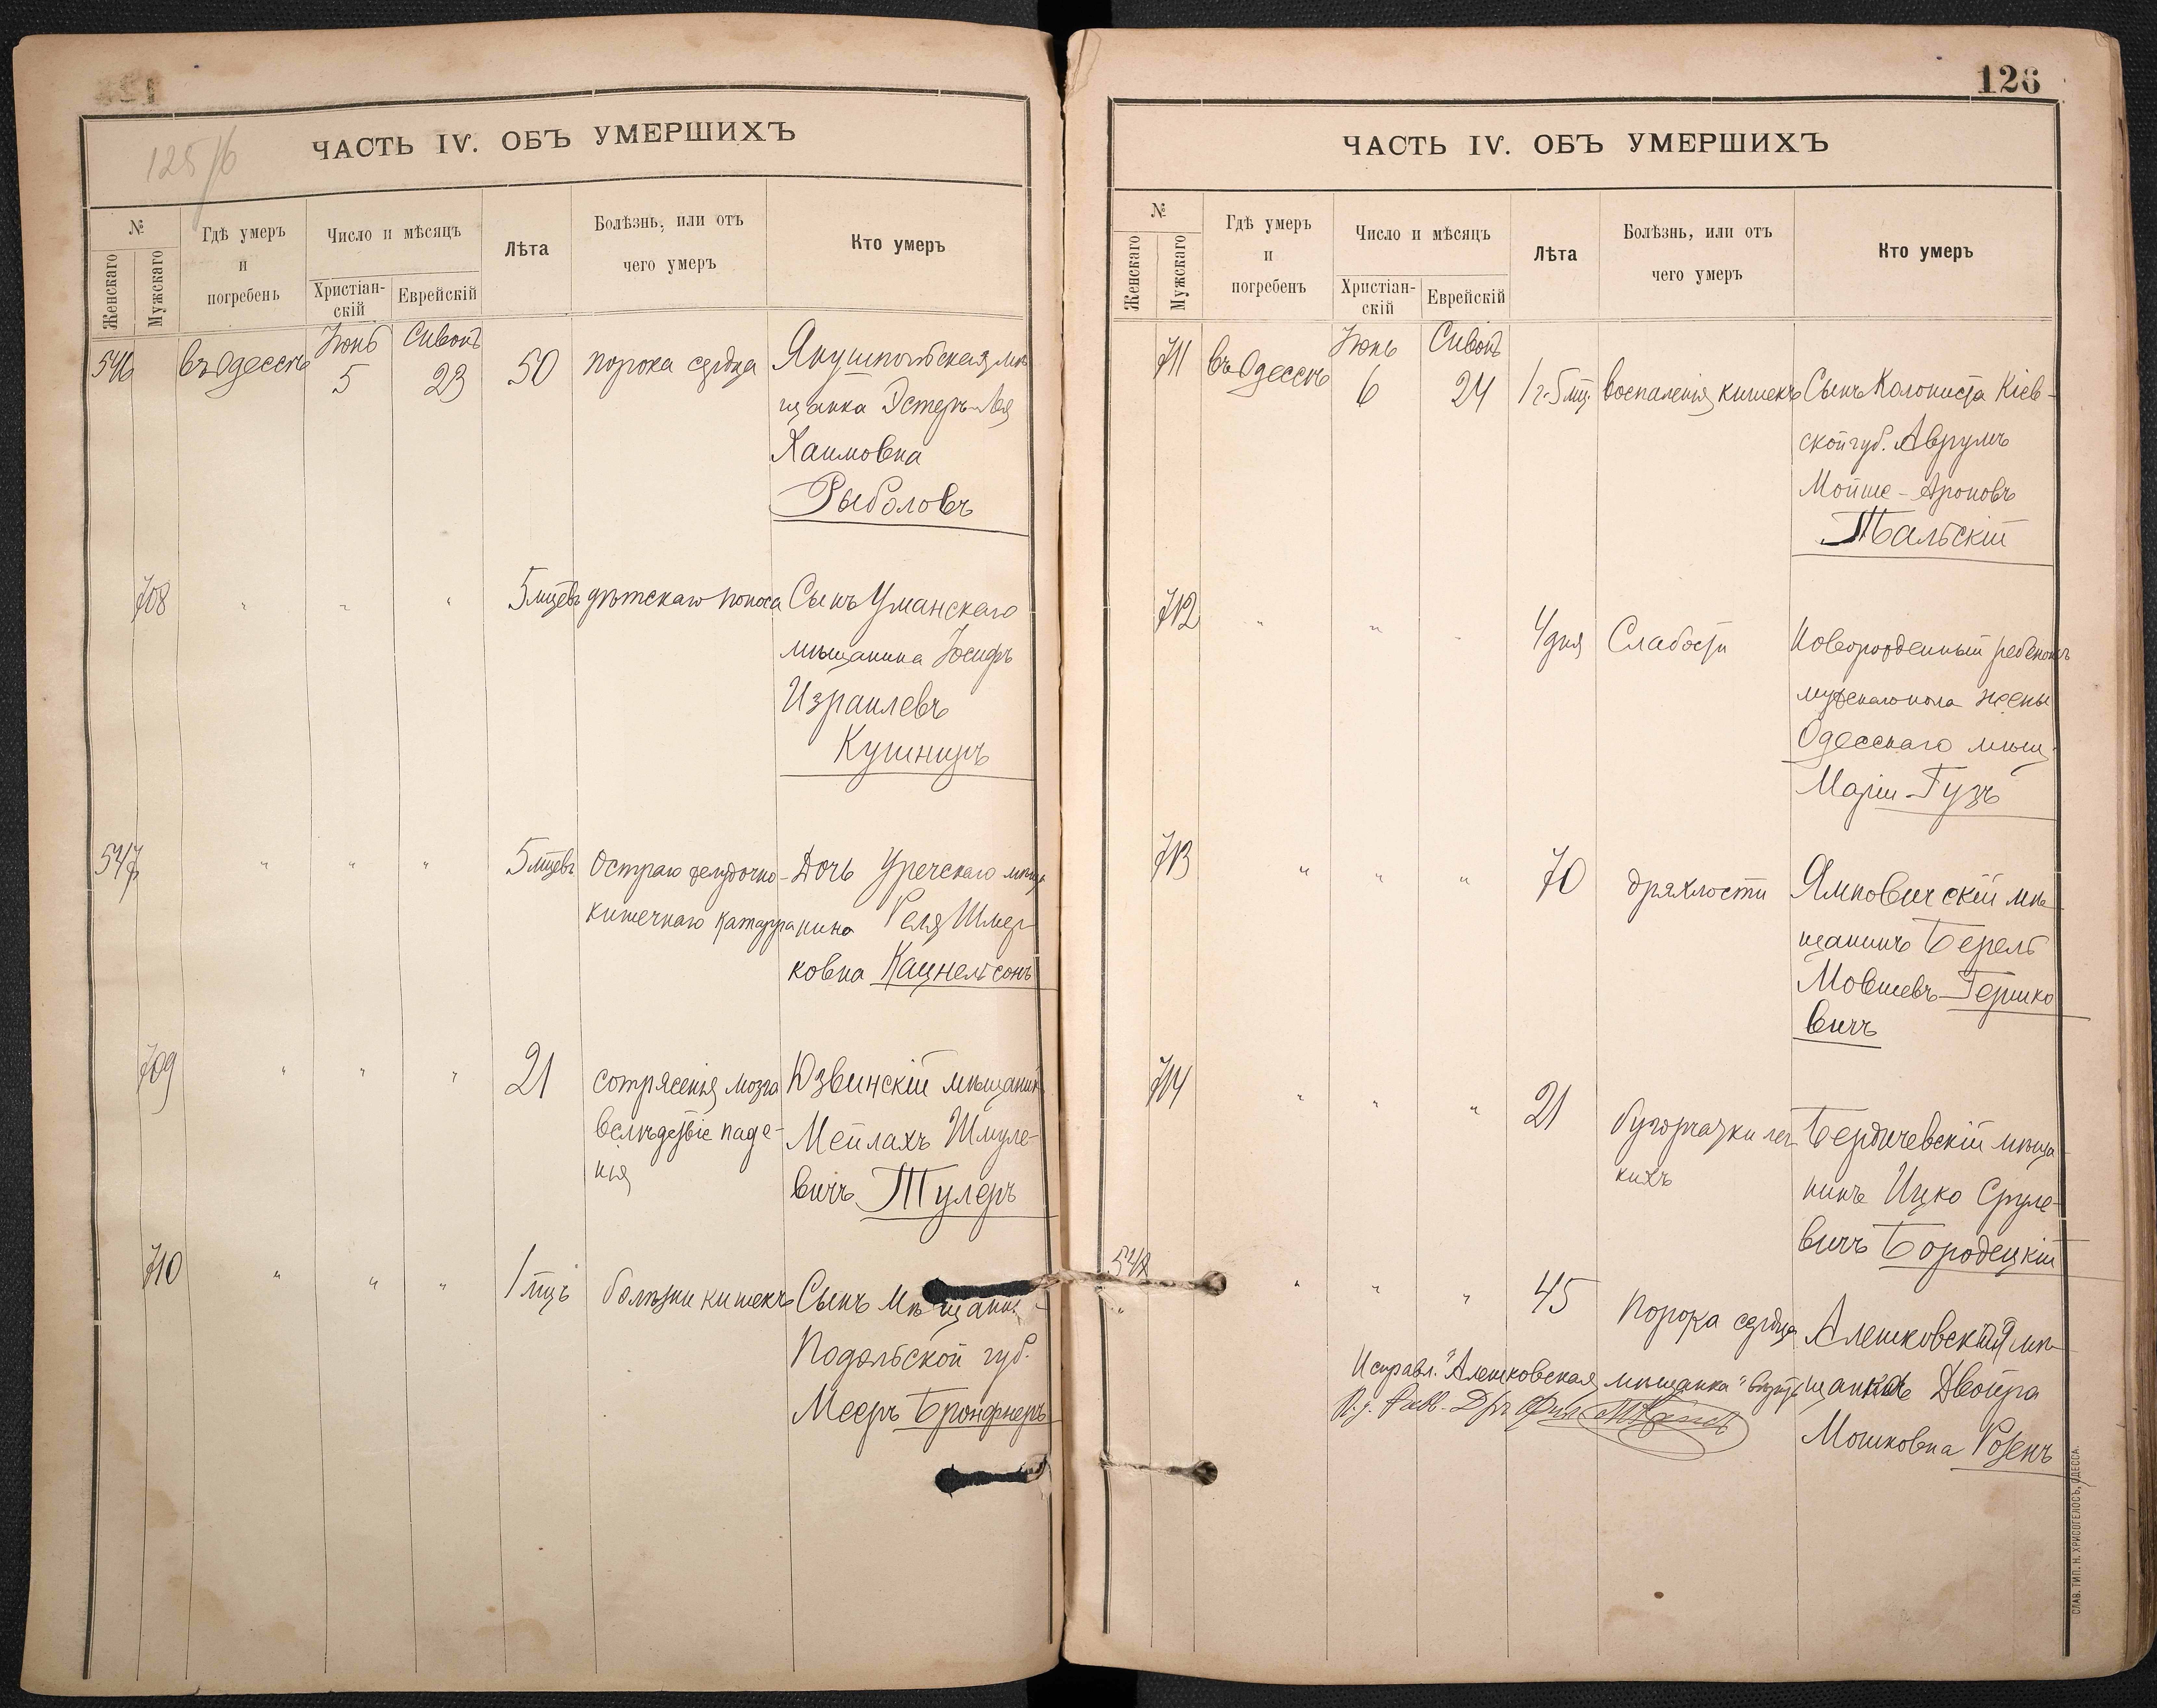 125/б
ЧАСТЬ IV. ОБЪ УМЕРШИХЪ
№
Женскаго
Мужскаго
Гдѣ умеръ
и
погребенъ
Число и мѣсяцъ
Христіан-
скій
Еврейскій
Лѣта
Болѣзнь, или отъ
чего умеръ
Кто умеръ
546
въ Одессѣ
Іюнь
5
Сивонъ
23
50
порока сердца
Якушпольская мѣ
щанка Эстеръ-Лея
Хаимовна
Рыболовъ
708
" " "
5 мцевъ
дѣтскаго поноса
Сынъ Уманскаго
мѣщанина Іосифъ
Израилевъ
Кушниръ
547
" " "
5 мцевъ
Остраго желудочно-
кишечнаго катарра
Дочь Уречскаго мѣща
нина Реля Шмер
ковна Кацнельсонъ
709
" " "
21
сотрясенія мозга
вслѣдствіе паде-
нія
Юзвинскій мѣщанин
Мейлахъ Шмуле-
вичъ Тулеръ
710
" " "
1 мцъ
болѣзни кишекъ
Сынъ мѣщани
Подольской губ.
Мееръ Бронфнеръ
126
ЧАСТЬ IV. ОБЪ УМЕРШИХЪ
№
Женскаго
Мужскаго
Гдѣ умеръ
и
погребенъ
Число и мѣсяцъ
Христіан-
скій
Еврейскій
Лѣта
Болѣзнь, или отъ
чего умеръ
Кто умеръ
711
въ Одессѣ
Іюнь
6
Сивонъ
24
1 г. 5 мц.
воспаленія кишекъ
Сынъ Колониста Кіев-
ской губ. Аврумъ
Мойше-Ароновъ
Тальскій
712
" " "
4 дня
Слабости
Новорожденный ребенокъ
мужскаго пола жены
Одесскаго мѣщ.
Маріи Гузъ
713
" " "
70
дряхлости
Ямповичскій мѣ-
щанинъ Берель
Мовшевъ Гершко
вичъ
714
" " "
21
бугорчатки лег-
кихъ
Бердичевскій мѣща
нинъ Ицко Сруле-
вичъ Бородецкій
548
" " "
45
Порока сердца
Алешковская мѣ-
щанка Двойра
Мошковна Розенъ
Исправл. "Алешковская мѣщанка" вѣрно
И. д. Равв. Д-ръ Фил.
СЛАВ. ТИП. Н. ХРИСОГЕЛОСЪ, ОДЕССА.